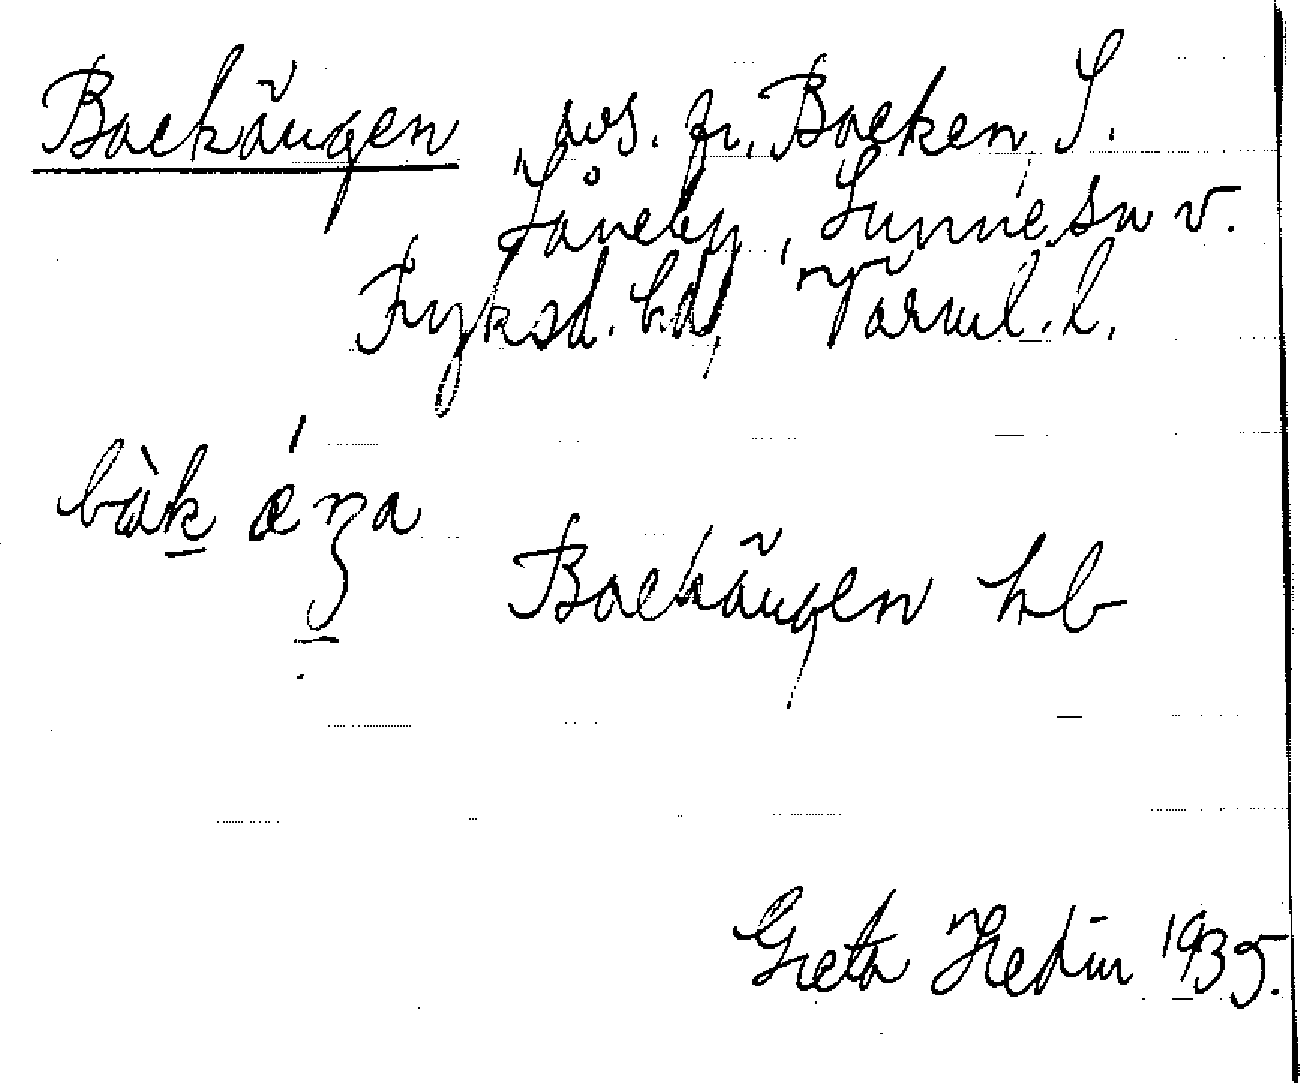 Backängen avs. fr. Backen, S.
Låneby, Sunne sn v.
Fryksd. hd, Värml. l.
bàk ǽŋa
Backängen hb
Greta Hedin 1935.